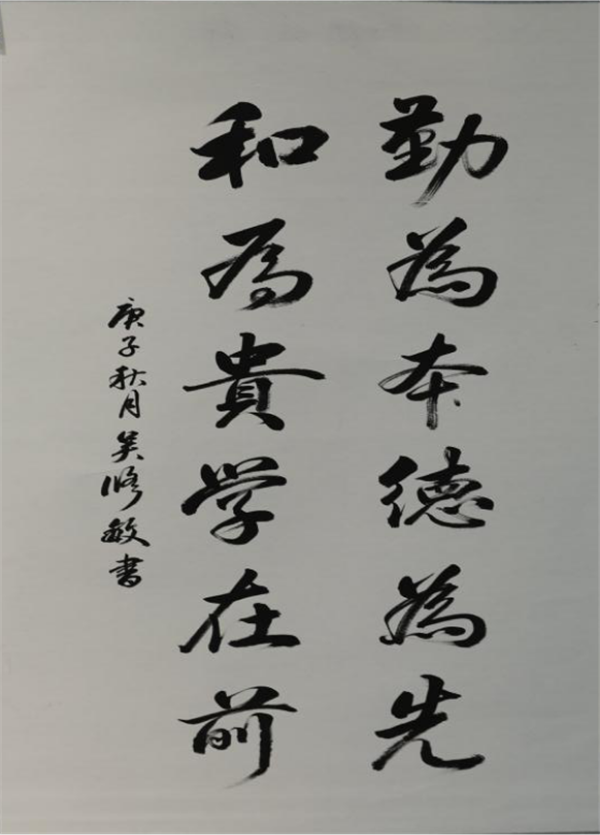 勤為本德為先
和為貴学在前
庚子秋月吴修敏書